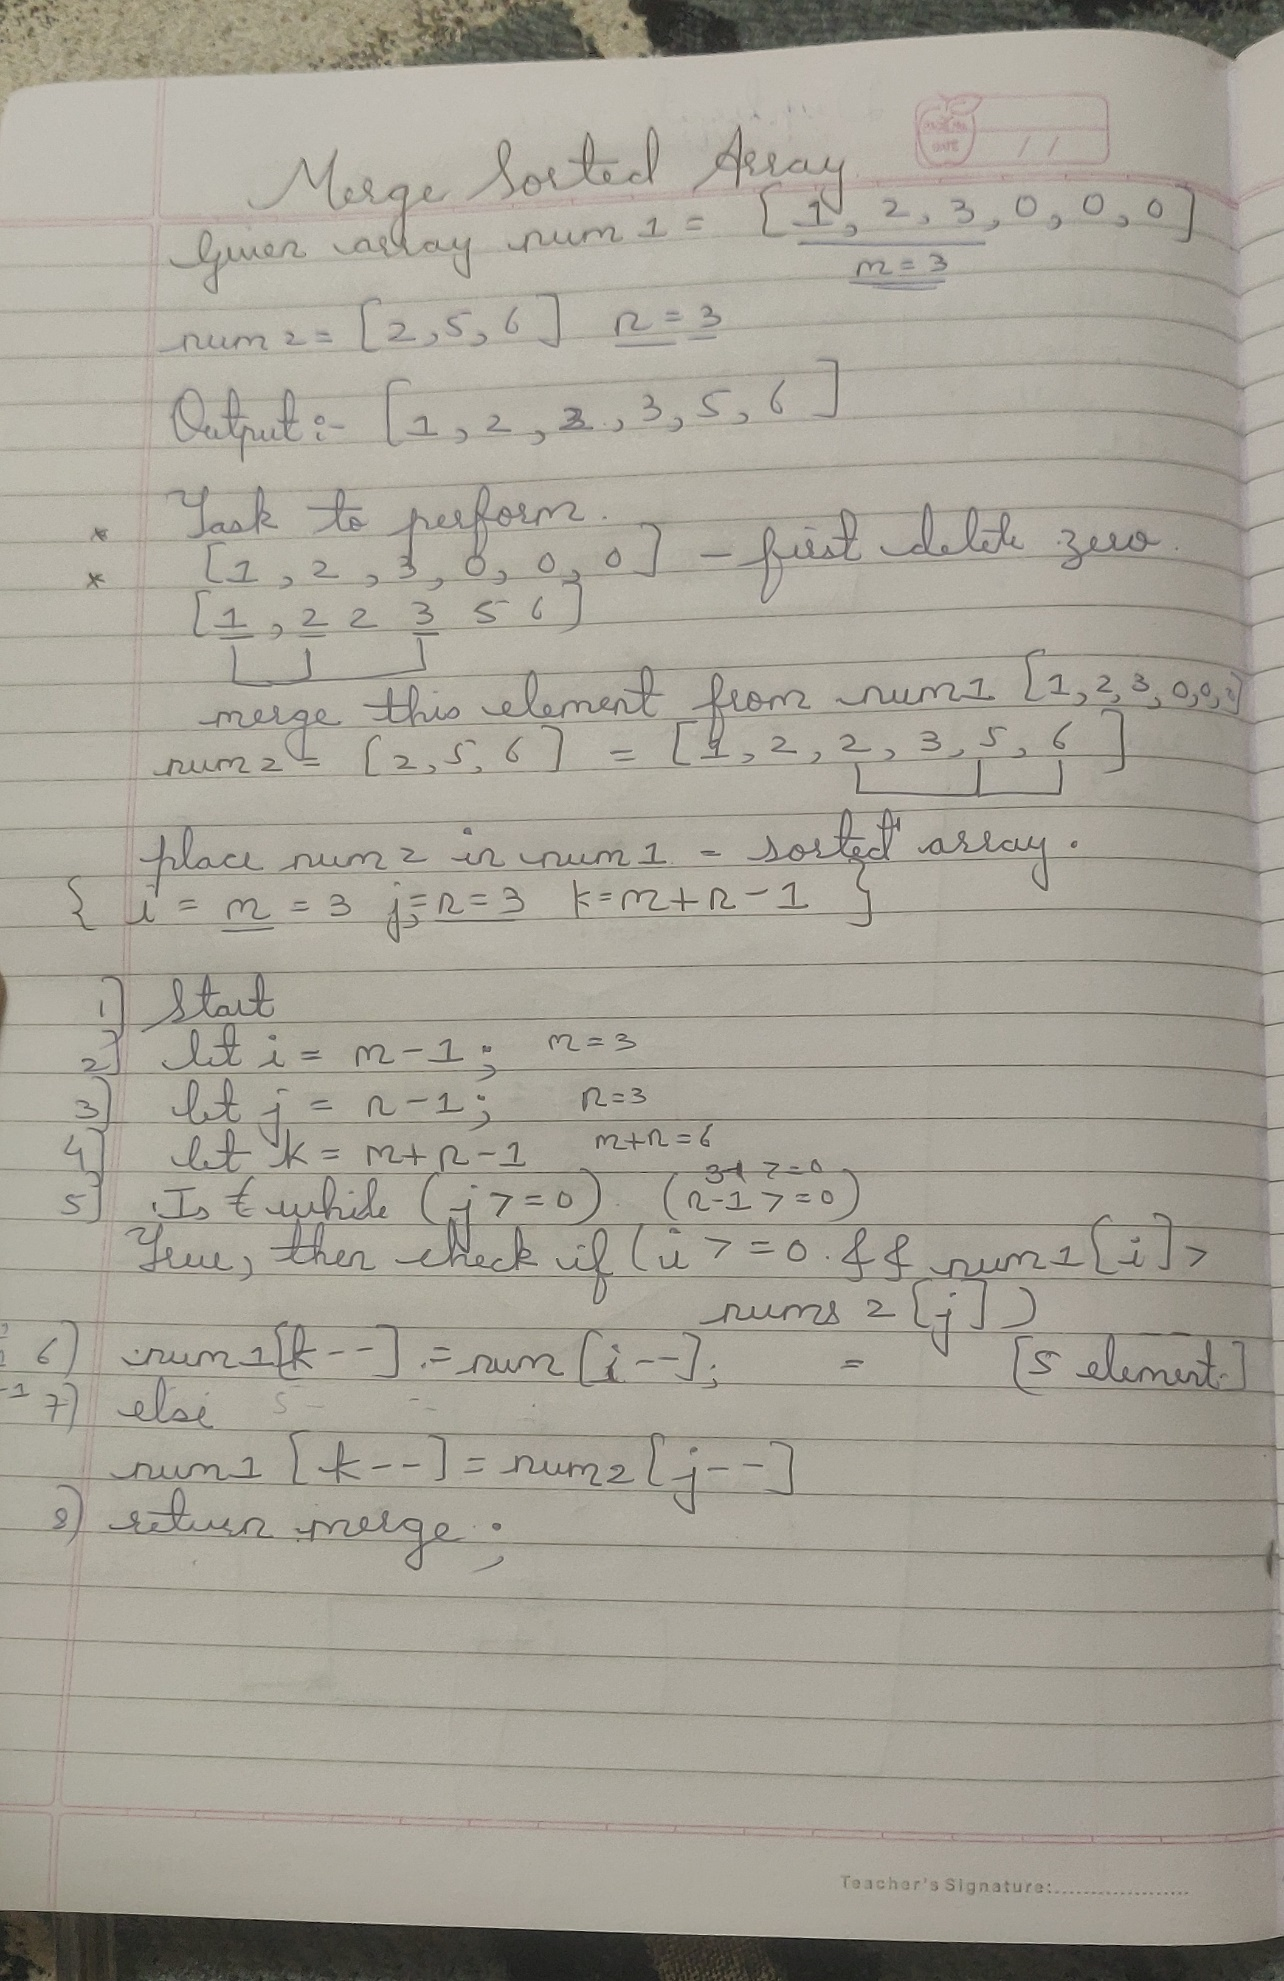 Merge Sorted Array
Given array num 1 = [1, 2, 3, 0, 0, 0]
m = 3
num 2 = [2, 5, 6] n = 3
Output :- [1, 2, 2, 3, 5, 6]
* Task to perform.
* [1, 2, 3, 0, 0, 0] - first delete zero.
[1, 2 2 3 5 6]
merge this element from num 1 [1, 2, 3, 0, 0, 0]
num 2 = [2, 5, 6] = [1, 2, 2, 3, 5, 6]
place num 2 in num 1 - sorted array.
{ i = m = 3 j = n = 3 k = m + n - 1 }
1] Start
2] let i = m - 1 ; m = 3
3] let j = n - 1 ; n = 3
4] let k = m + n - 1 m + n = 6
5] Is while (j >= 0) (n - 1 >= 0)
True, then check if (i >= 0 && num 1 [i] >
nums 2 [j])
6) num 1 [k - -] = num [i - -]; = [5 element]
7) else
num 1 [k - -] = num 2 [j - -]
8) return merge ;
DATE / /
Teacher's Signature: